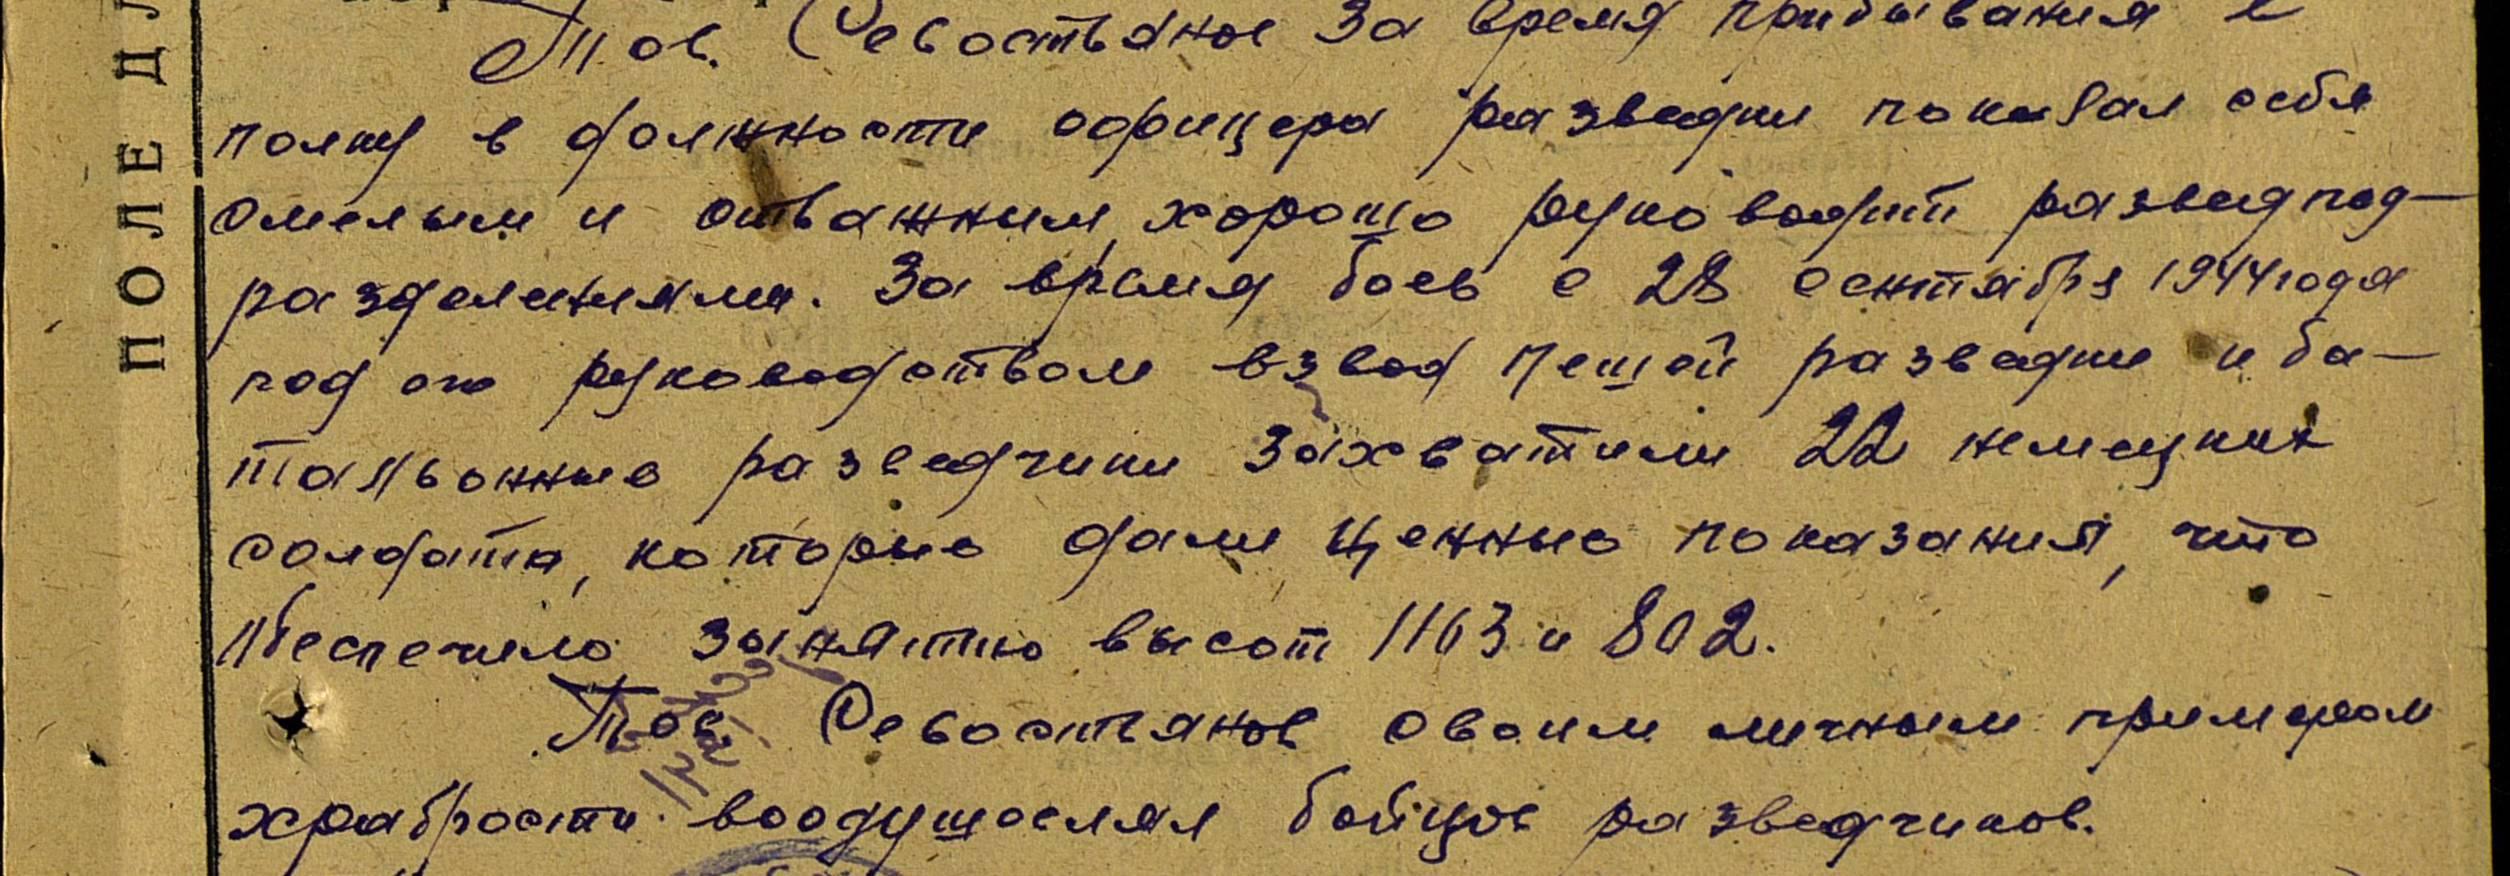 Тов. Севостьянов за время прибывания в
полку в должности офицера разведки показал себя
смелым и отважным, хорошо руководит развед под-
разделениями. За время боев с 28 сентября 1944 года
под его руководством взвод пешей разведки и ба-
тальонные разведчики захватили 22 немецких
солдата, которые дали ценные показания, что
обеспечило занятие высот 1163 и 802.
Тов. Севостьянов своим личным примером
храбрости воодушевлял бойцов разведчиков.
ПОЛЕ ДЛ